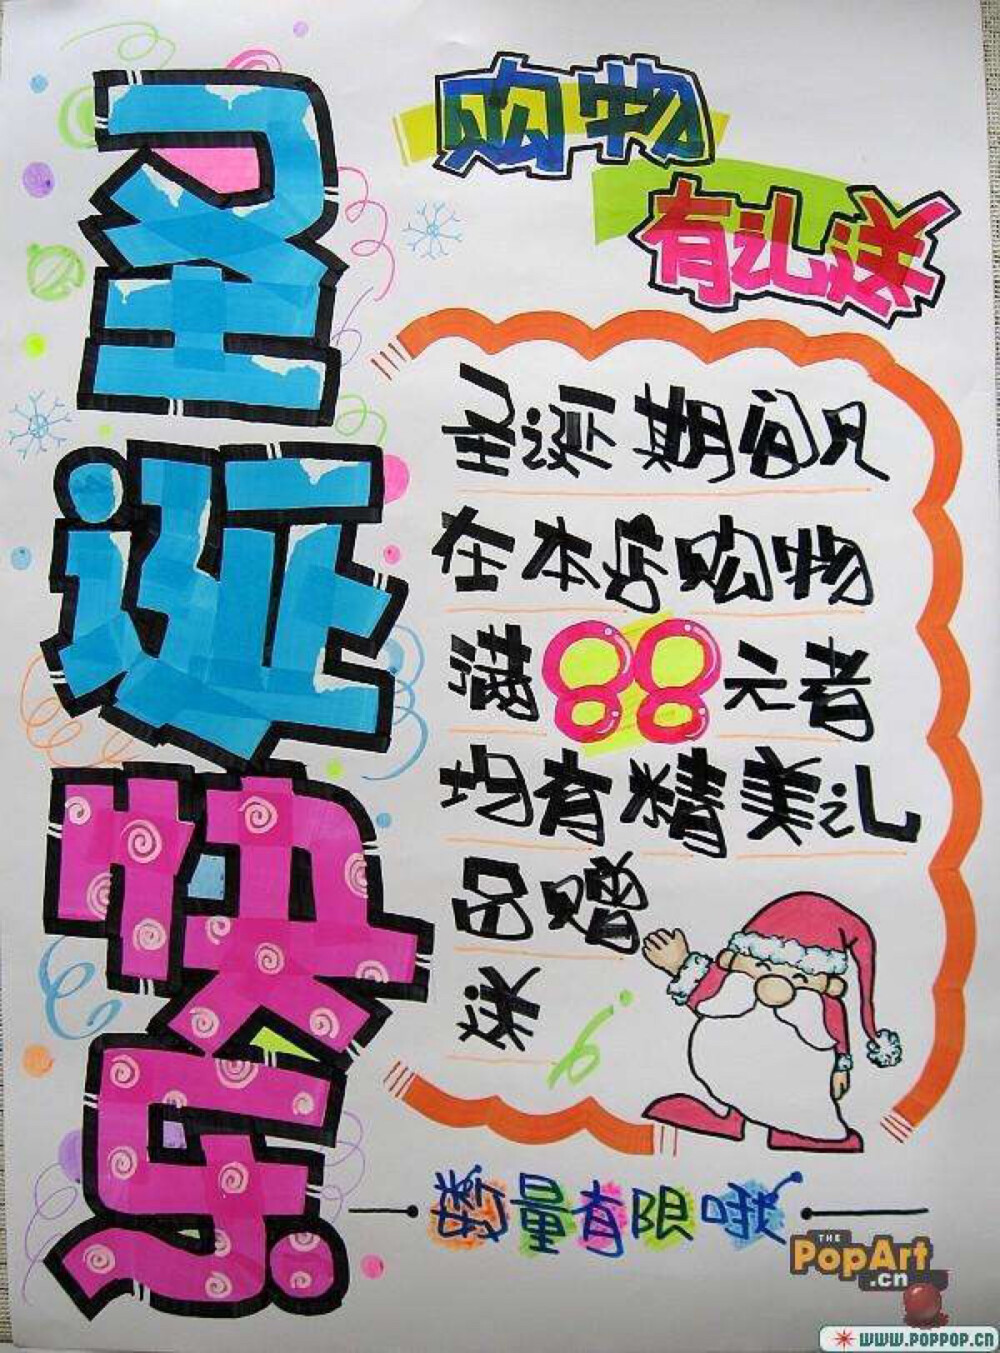 圣诞快乐
购物
有礼送
圣诞期间凡
在本店购物
满88元者
均有精美礼
品赠
送
数量有限哦
THE
PopArt
.cn
WWW.POPPOP.CN